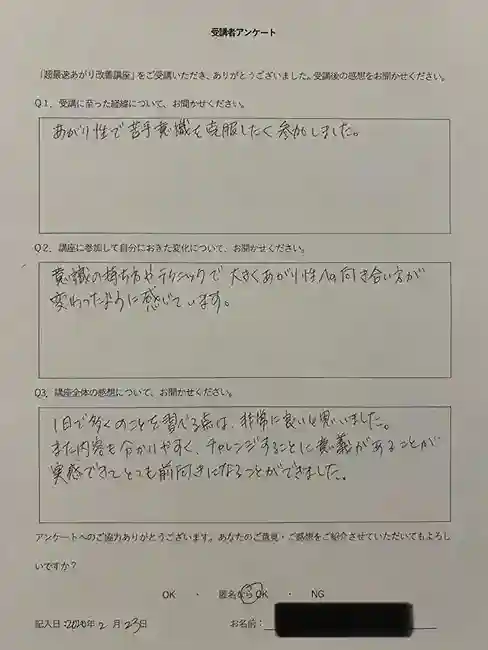 受講者アンケート
「超最速あがり改善講座」をご受講いただき、ありがとうございました。受講後の感想をお聞かせください。
Q1、受講に至った経緯について、お聞かせください。
あがり性で苦手意識を克服したく参加しました。
Q2、講座に参加して自分におきた変化について、お聞かせください。
意識の持ち方やテクニックで大きくあがり性への向き合い方が
変わったように感じています。
Q3、講座全体の感想について、お聞かせください。
1日で多くのことを習べる点は、非常に良いと思いました。
また内容も分かりやすく、チャレンジすることに意義があることが
実感できてとても前向きになることができました。
アンケートへのご協力ありがとうございます。あなたのご意見・ご感想をご紹介させていただいてもよろし
いですか？
OK ・ 匿名ならOK ・ NG
記入日:2020年2月23日 お名前：